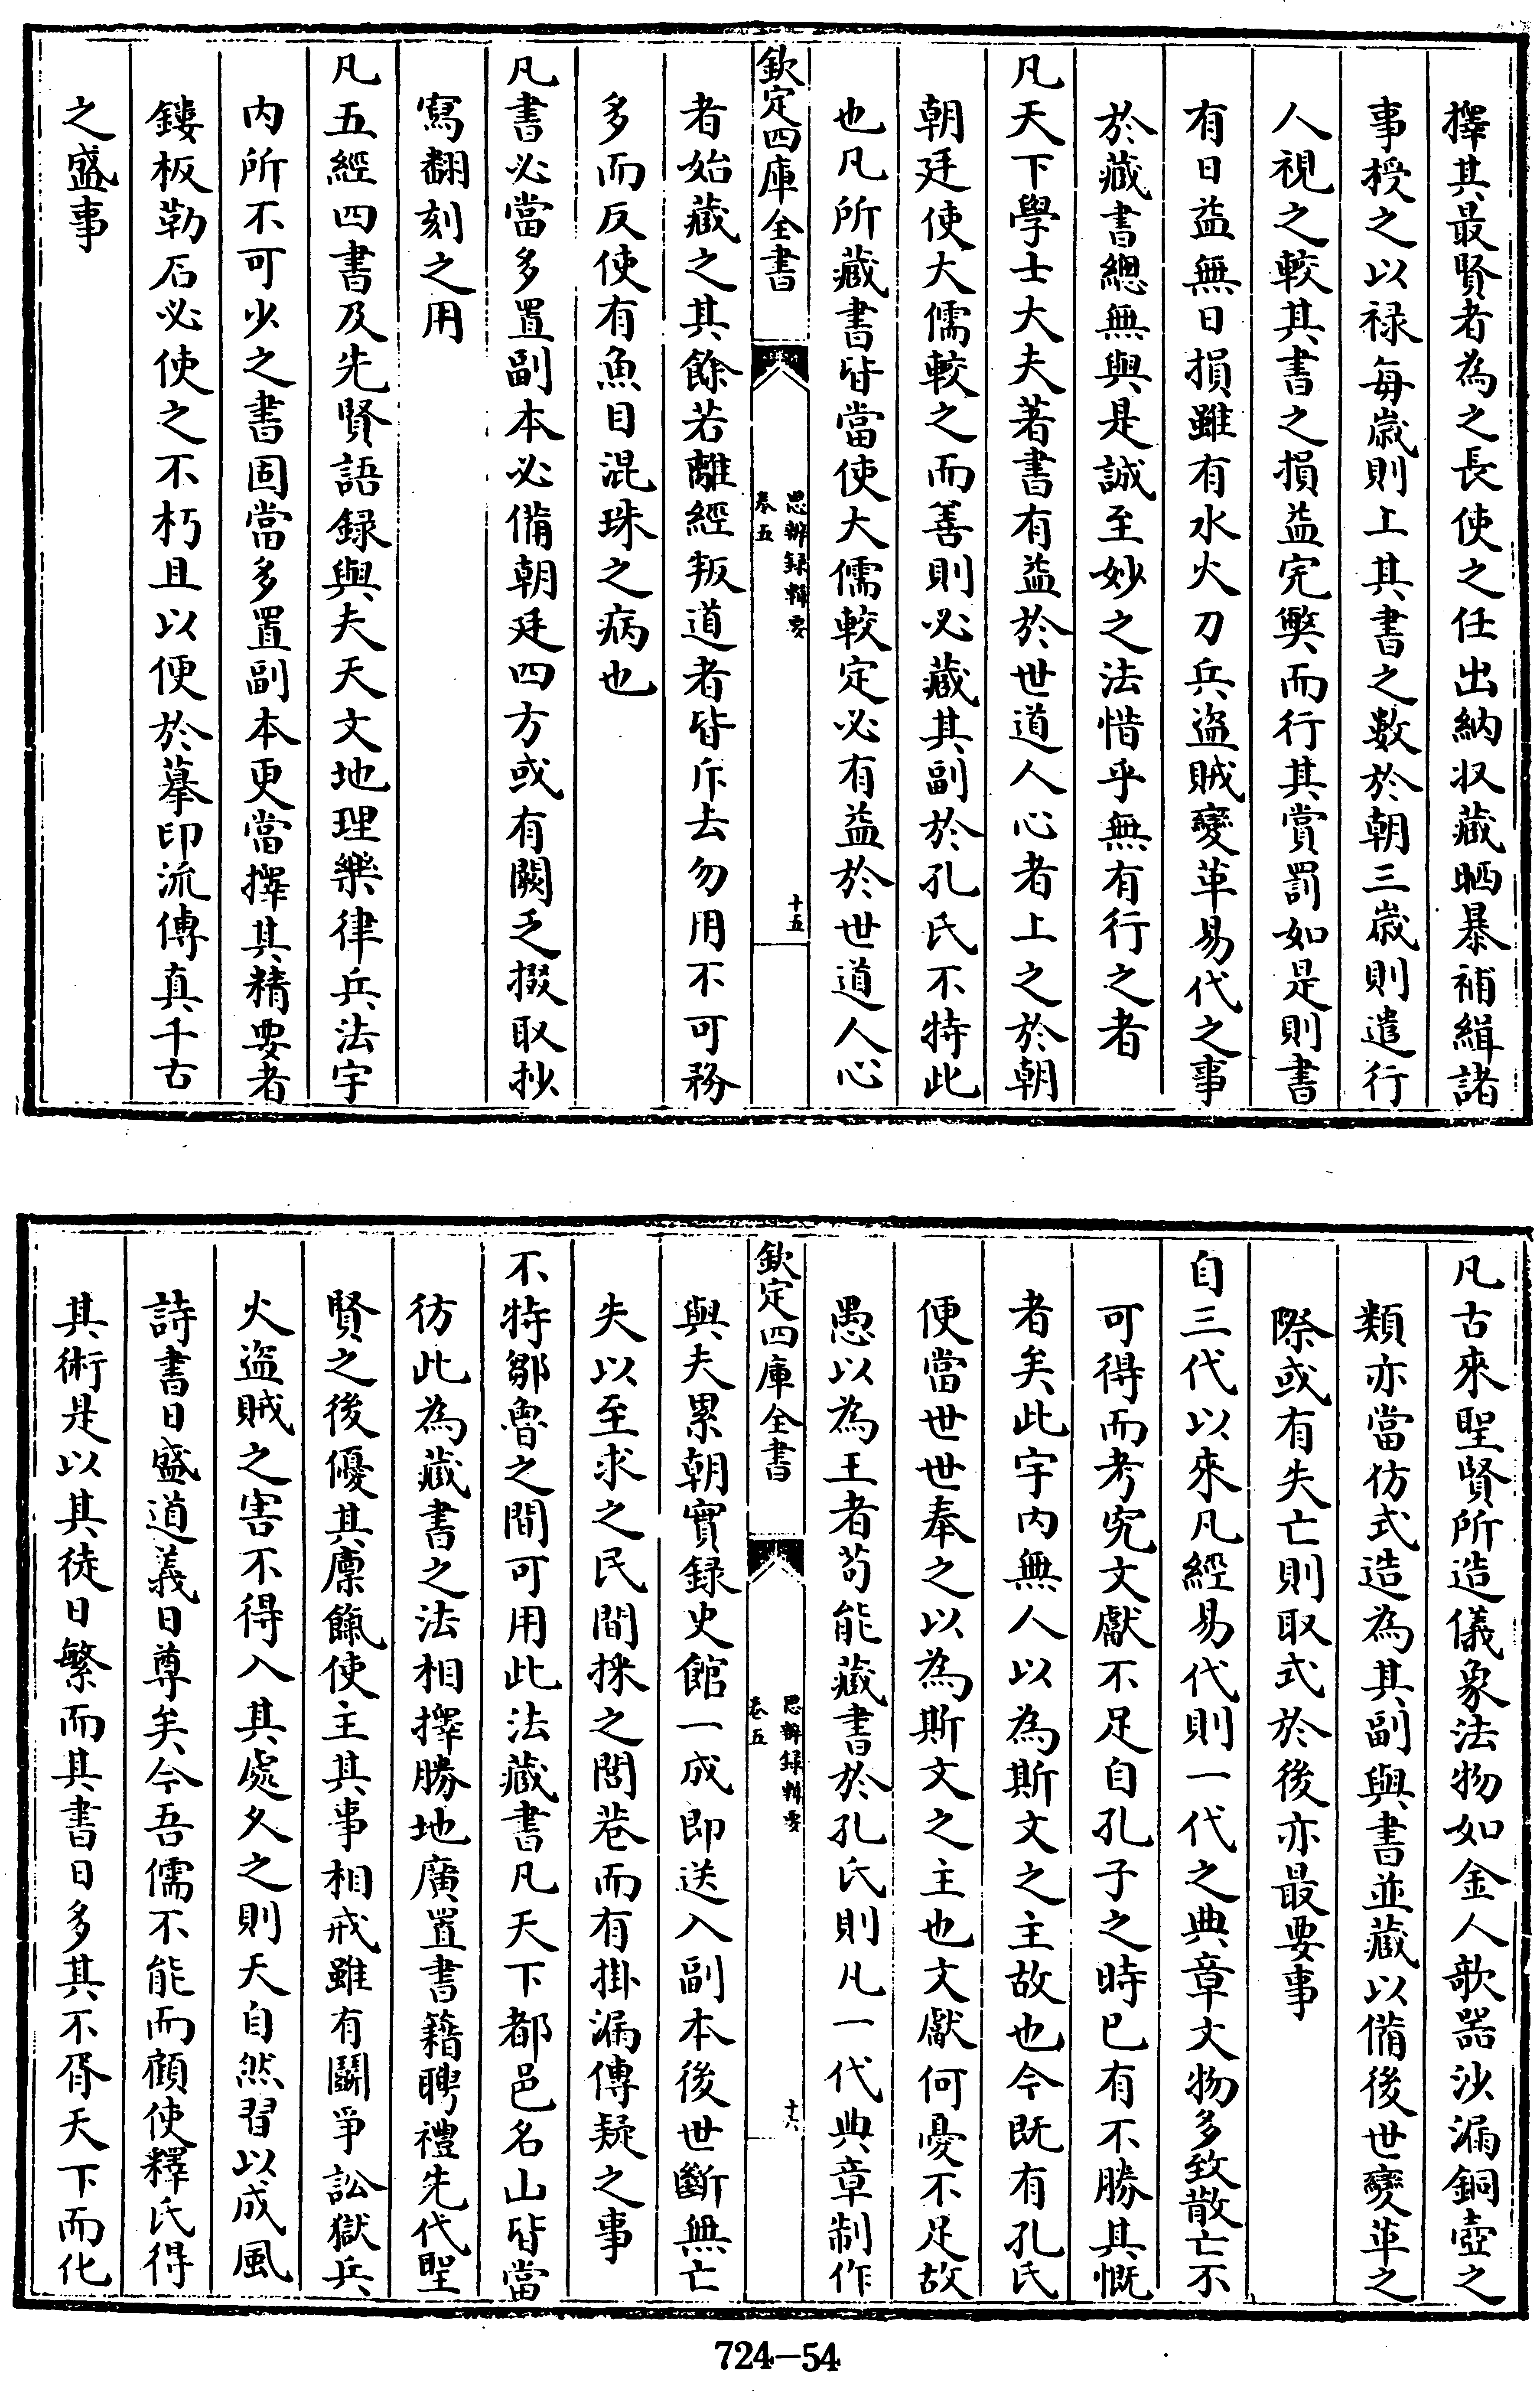 擇其最賢者為之長使之任出納収藏晒暴補緝諸
事授之以禄每歲則上其書之數於朝三歲則遣行
人視之較其書之損益完弊而行其賞罰如是則書
有日益無日損雖有水火刀兵盜賊變革易代之事
於藏書總無與是誠至妙之法惜乎無有行之者
凡天下學士大夫著書有益於世道人心者上之於朝
朝廷使大儒較之而善則必藏其副於孔氏不特此
也凡所藏書皆當使大儒較定必有益於世道人心
欽定四庫全書
思辨録輯要
卷五
十五
者始藏之其餘若離經叛道者皆斥去勿用不可務
多而反使有魚目混珠之病也
凡書必當多置副本必備朝廷四方或有闕乏掇取抄
寫翻刻之用
凡五經四書及先賢語録與夫天文地理樂律兵法宇
内所不可少之書固當多置副本更當擇其精要者
鏤板勒石必使之不朽且以便於摹印流傳真千古
之盛事
凡古來聖賢所造儀象法物如金人欹器沙漏銅壺之
類亦當仿式造為其副與書並藏以備後世變革之
際或有失亡則取式於後亦最要事
自三代以來凡經易代則一代之典章文物多致散亡不
可得而考究文獻不足自孔子之時已有不勝其慨
者矣此宇内無人以為斯文之主故也今既有孔氏
便當世世奉之以為斯文之主也文獻何憂不足故
愚以為王者茍能藏書於孔氏則凡一代典章制作
欽定四庫全書
思辨録輯要
卷五
十六
與夫累朝實録史館一成即送入副本後世斷無亡
失以至求之民間採之閭巷而有掛漏傳疑之事
不特鄒魯之間可用此法藏書凡天下都邑名山皆當
彷此為藏書之法相擇勝地廣置書籍聘禮先代聖
賢之後優其廩餼使主其事相戒雖有鬭爭訟獄兵
火盜賊之害不得入其處久之則天自然習以成風
詩書日盛道義日尊矣今吾儒不能而顧使釋氏得
其術是以其徒日繁而其書日多其不胥天下而化
724-54